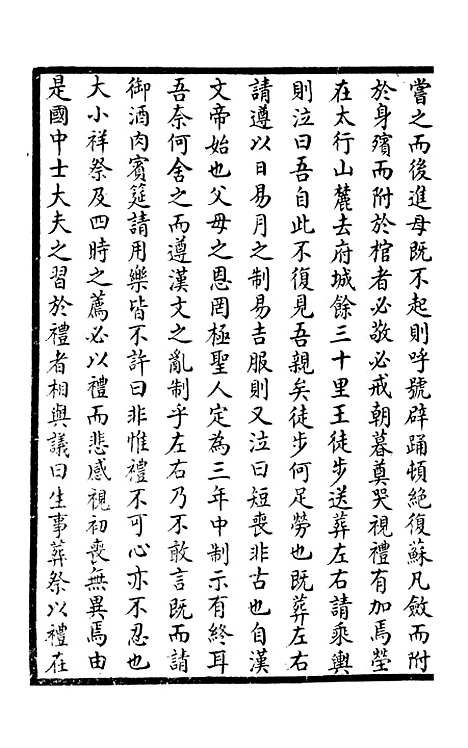 嘗之而後進母既不起則呼號辟踊頓絶復蘇凡斂而附
於身殯而附於棺者必敬必戒朝暮奠哭視禮有加焉塋
在太行山麓去府城餘三十里王徒步送葬左右請乘輿
則泣曰吾自此不復見吾親矣徒步何足勞也既葬左右
請遵以日易月之制易吉服則又泣曰短喪非古也自漢
文帝始也父母之恩罔極聖人定為三年中制示有終耳
吾奈何舍之而遵漢文之亂制乎左右乃不敢言既而請
御酒肉賓筵請用樂皆不許曰非惟禮不可心亦不忍也
大小祥祭及四時之薦必以禮而悲感視初喪無異焉由
是國中士大夫之習於禮者相與議曰生事葬祭以禮在